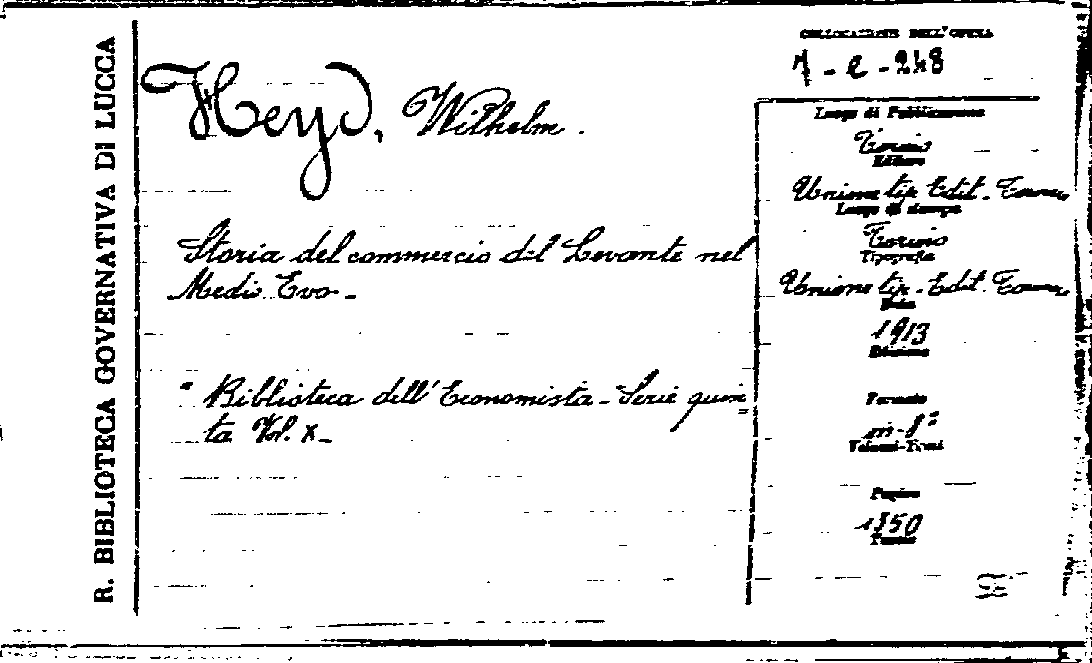 R. BIBLIOTECA GOVERNATIVA DI LUCCA
COLLOCAZIONE DELL'OPERA
7-e-248
Heyd, Wilhelm.
Storia del commercio del Levante nel
Medio Evo-
" Biblioteca dell'Economista - Serie quin=
ta Vol. X-
Luogo di Pubblicazione
Torino
Editore
Unione tip. Edit. Torin
Luogo di stampa
Torino
Tipografia
Unione tip. Edit. Torin
Data
1913
Edizione
Formato
in-8°
Volumi-Tomi
Pagine
1350